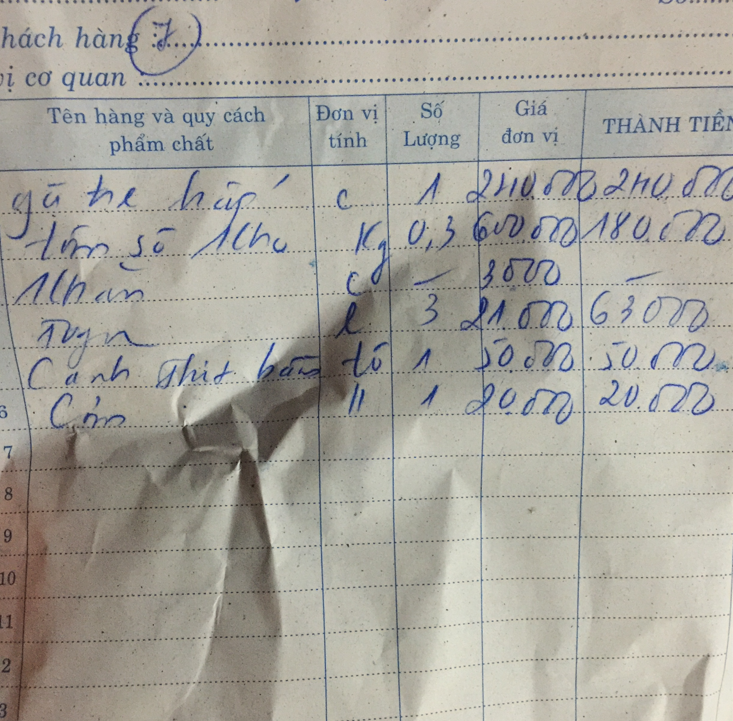 hách hàng : 7
ị cơ quan :
Tên hàng và quy cách phẩm chất Đơn vị tính Số Lượng Giá đơn vị THÀNH TIỀN
gà he hấp c 1 240.000 240.000
tôm số Kg 0,3 600.000 180.000
Nhãn c — 3000 —
l 3 21.000 63000
Canh thịt bằm tô 1 50.000 50.000
6 Cơm " 1 20.000 20.000
7
8
9
10
11
2
3